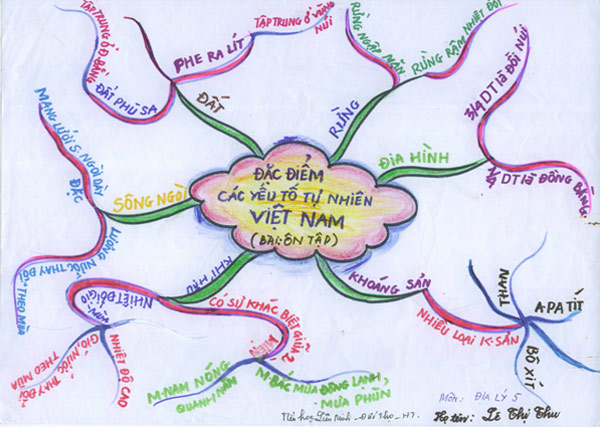 ĐẶC ĐIỂM
CÁC YẾU TỐ TỰ NHIÊN
VIỆT NAM
(BÀI: ÔN TẬP)
ĐẤT
PHE RA LÍT
TẬP TRUNG Ở VÙNG
NÚI
ĐẤT PHÙ SA
TẬP TRUNG Ở Đ BẰNG
RỪNG
RỪNG NGẬP MẶN
RỪNG RẬM NHIỆT ĐỚI
ĐỊA HÌNH
3/4 DT là ĐỒI NÚI
1/4 DT là ĐỒNG BẰNG
KHOÁNG SẢN
NHIỀU LOẠI K-SẢN
THAN
A PA TÍT
BÔ XÍT
KHÍ HẬU
NHIỆT ĐỚI GIÓ
MÙA
NHIỆT ĐỘ CAO
GIÓ, NƯỚC THAY ĐỔI
THEO MÙA
CÓ SỰ KHÁC BIỆT GIỮA 2
MIỀN
M-NAM NÓNG
QUANH NĂM
M-BẮC MÙA ĐÔNG LẠNH,
MƯA PHÙN
SÔNG NGÒI
MẠNG LƯỚI S. NGÒI DÀY
ĐẶC
LƯỢNG NƯỚC THAY ĐỔI THEO MÙA
Môn: ĐỊA LÝ 5
Họ tên: Lê Thị Thu